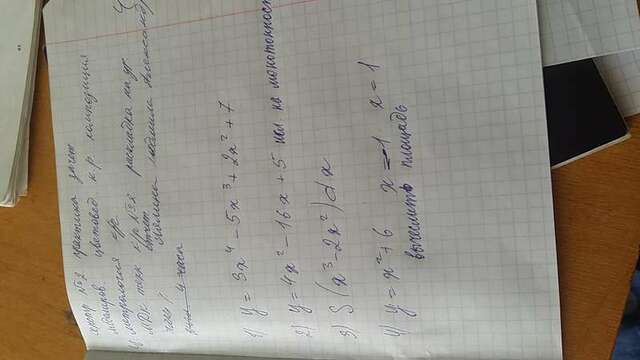 №2 практика зачет
цветовед к.р. композиция
метрология
МДК техн к/р №2 раскладка на
отчет
Людмила Александр
4 часа
1) y = 3x⁴ - 5x³ + 2x² + 7
2) y = 4x² - 16x + 5 исл. на монотонност
3) S (x³ - 2x²) dx
4) y = x² + 6 x = -1 x = 1
вычеслить площадь